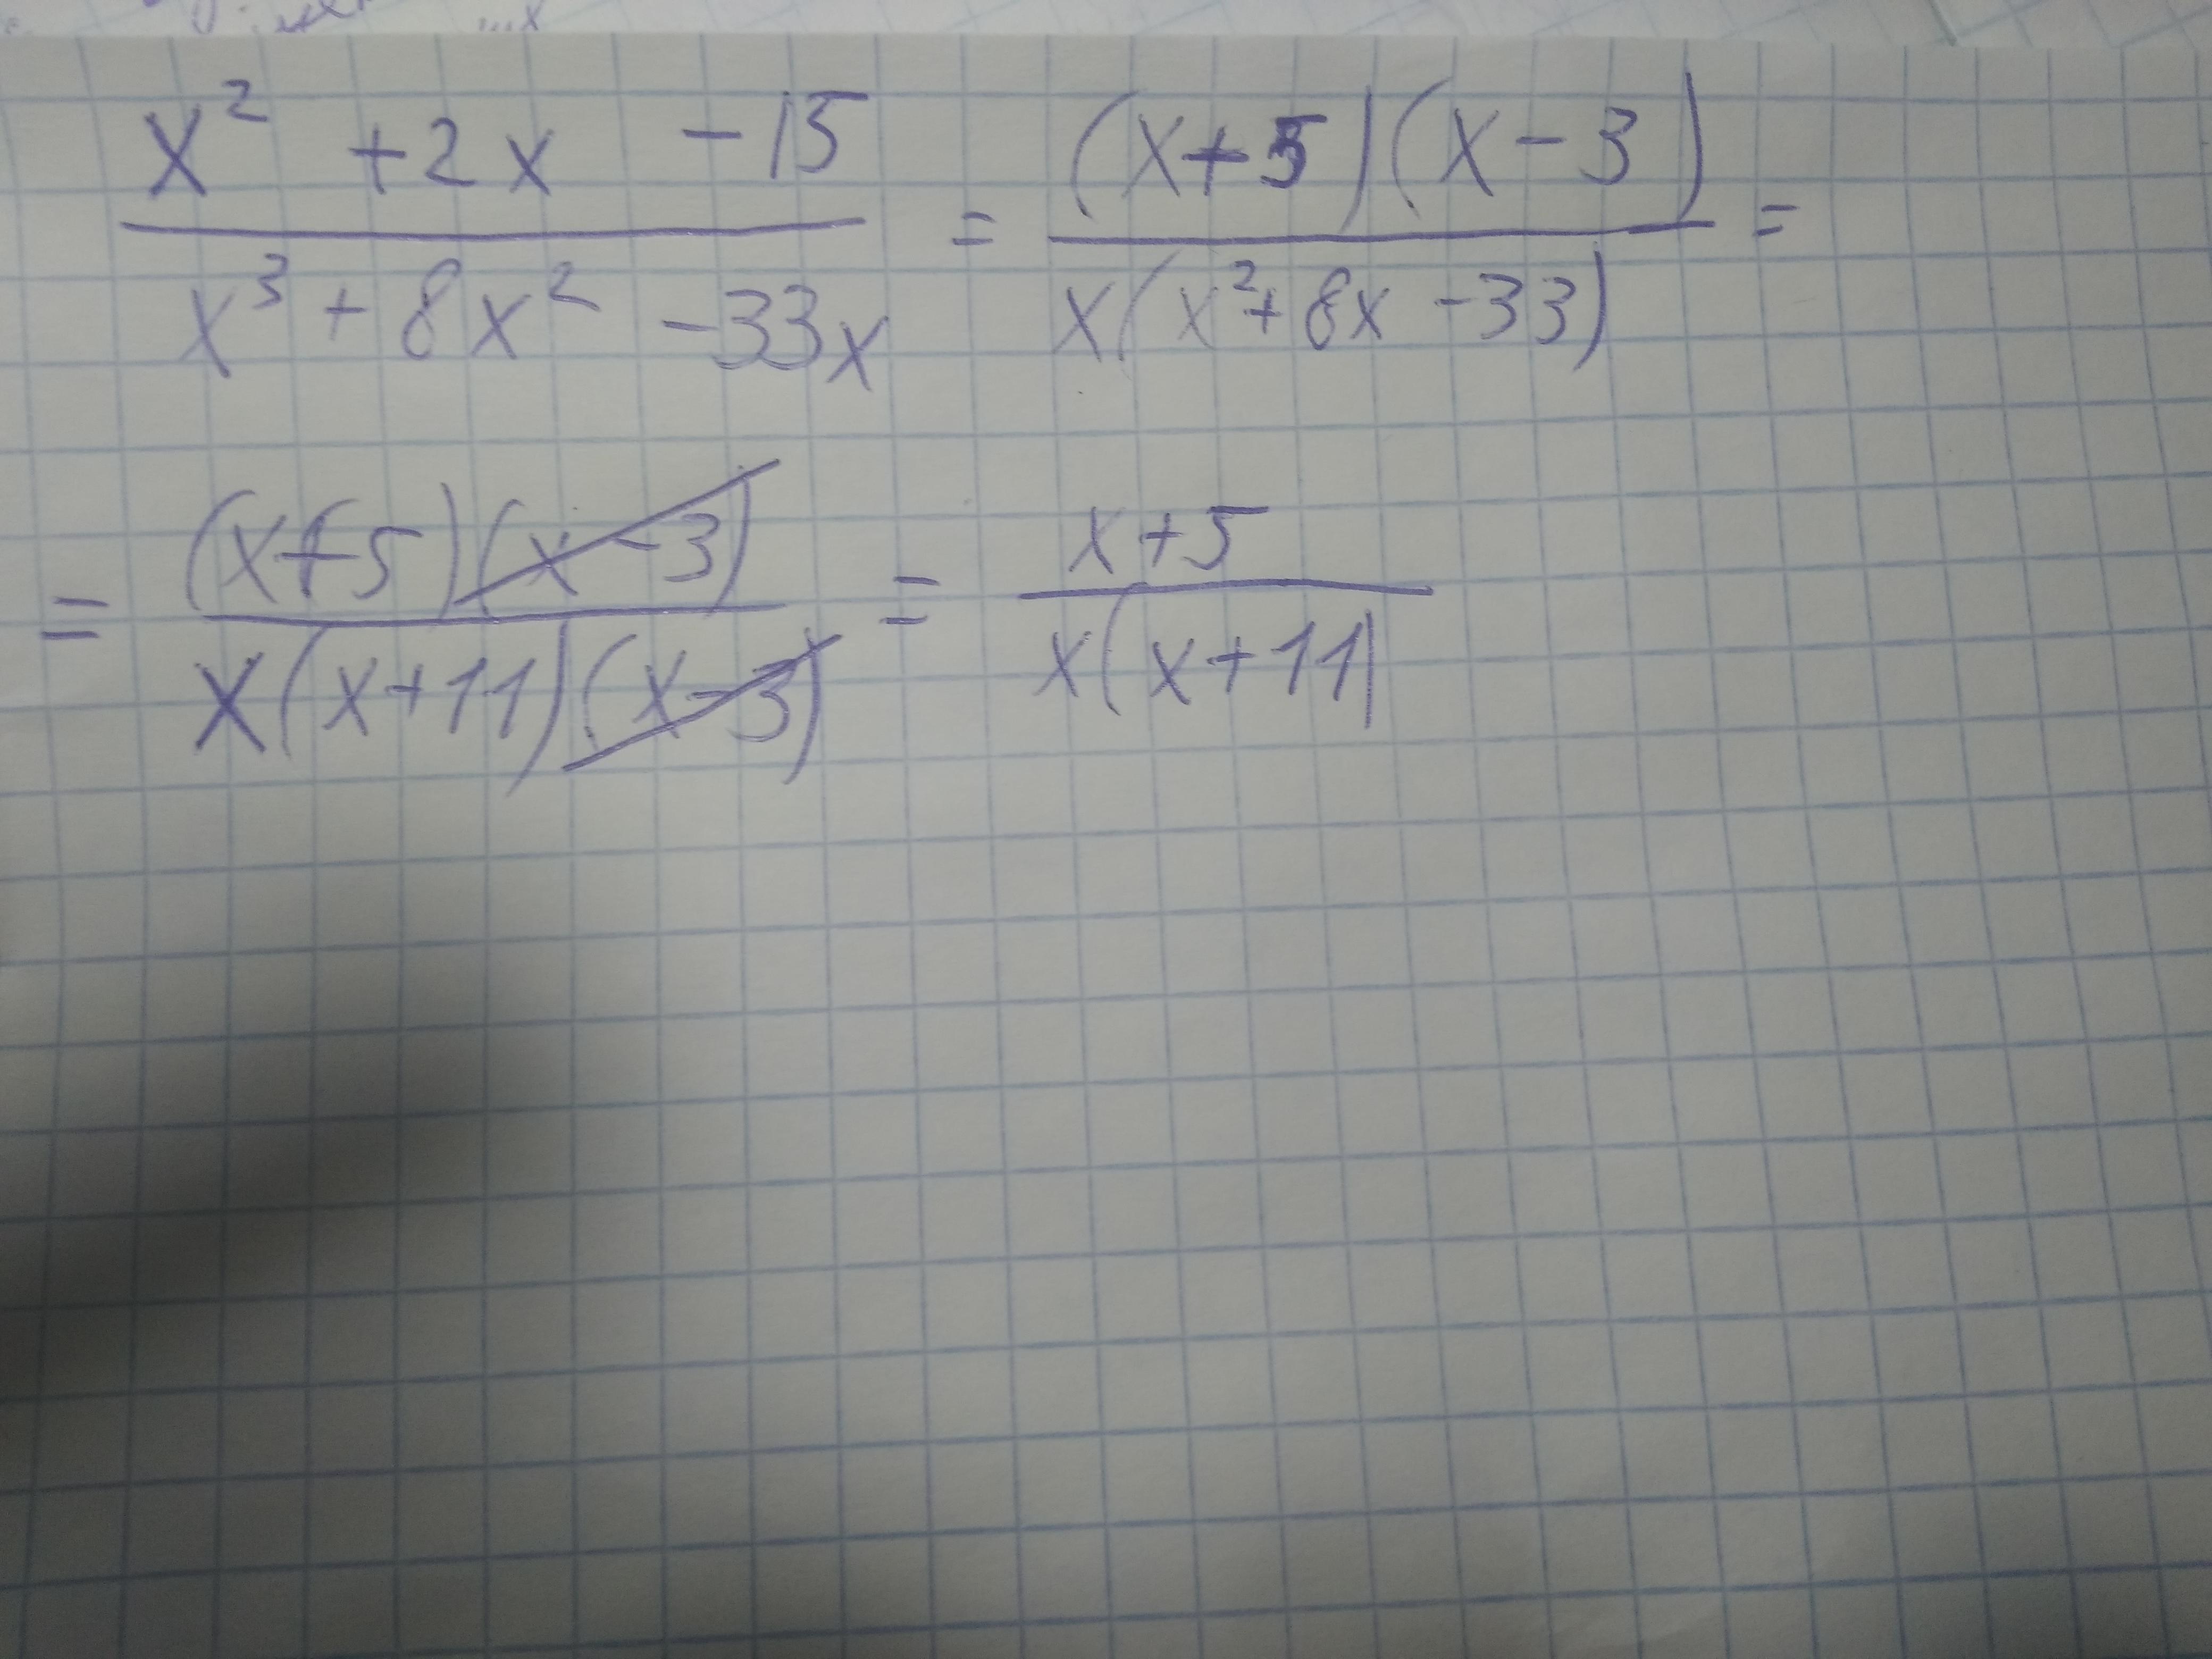 x² +2x -15 / x³ + 8x² -33x = (x+5)(x-3) / x(x²+8x-33) =
= (x+5)(x-3) / x(x+11)(x-3) = x+5 / x(x+11)